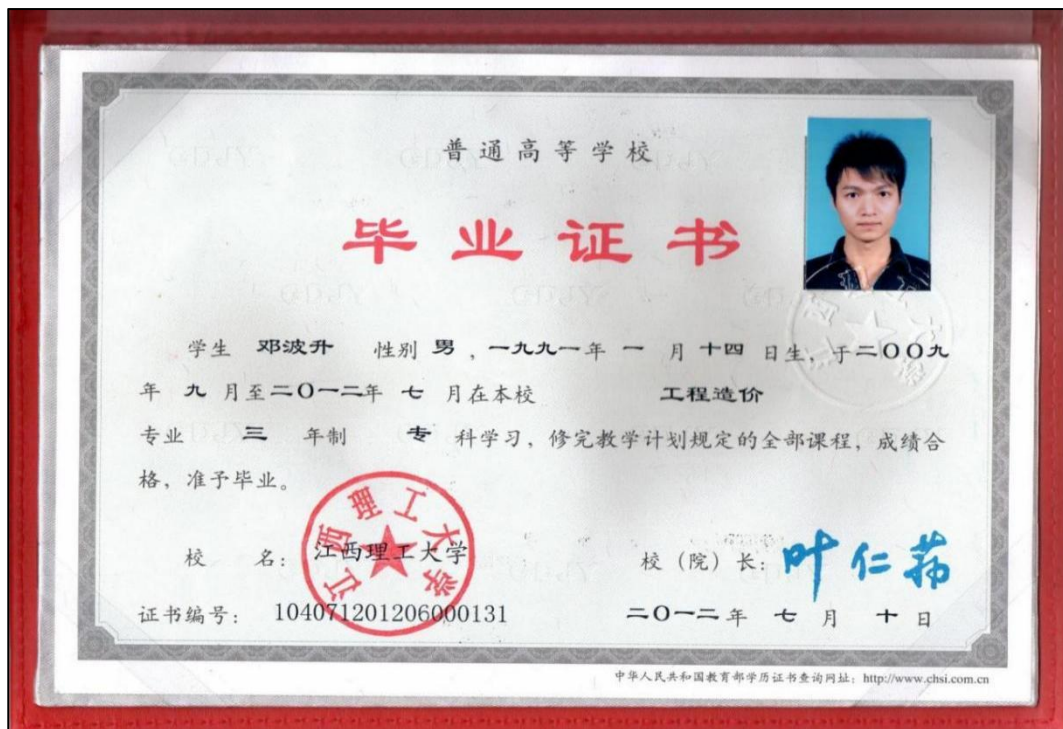 普通高等学校
毕业证书
学生 邓波升 性别 男 ，一九九一年 一 月 十四 日生，于二〇〇九
年 九 月至二〇一二年 七 月在本校 工程造价
专业 三 年制 专 科学习，修完教学计划规定的全部课程，成绩合
格，准予毕业。
江西理工大学
校 名：江西理工大学 校（院）长：叶仁荪
证书编号：104071201206000131 二〇一二年 七 月 十 日
中华人民共和国教育部学历证书查询网址：http://www.chsi.com.cn